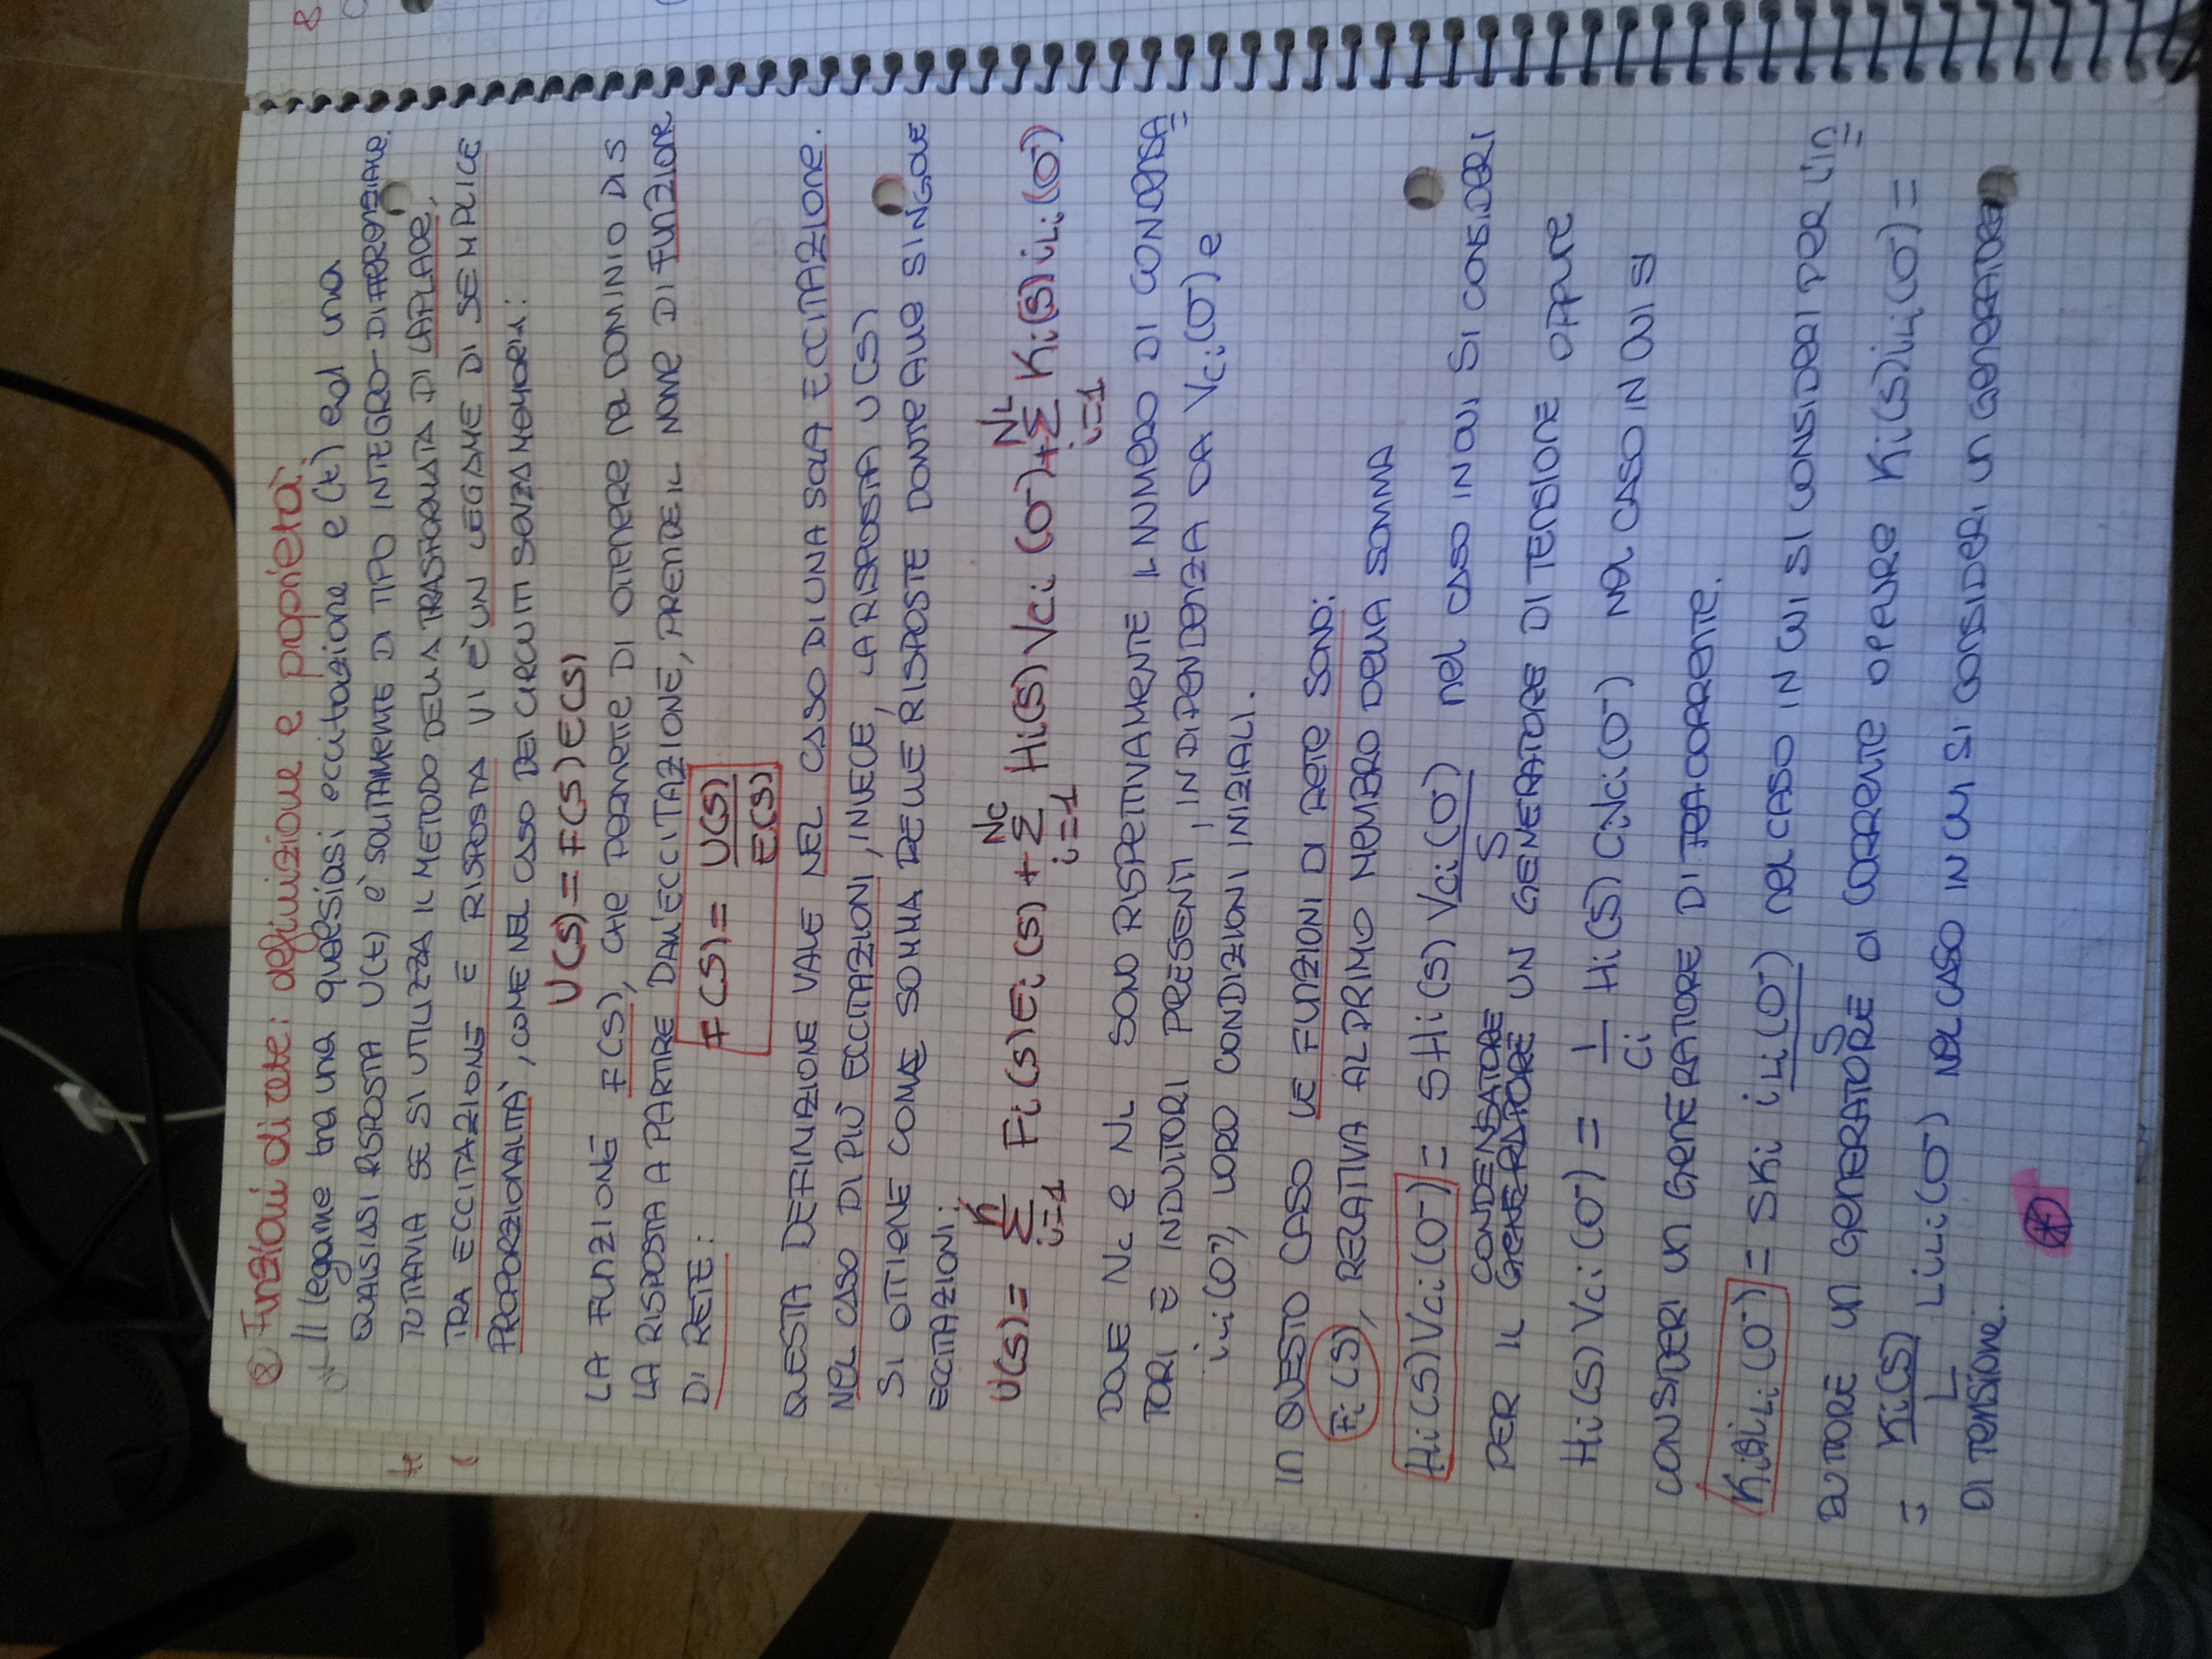 8 Funzioni di rete: definizione e proprietà.
Il legame tra una qualsiasi eccitazione e(t) ed una
QUALSIASI RISPOSTA U(t) E' SOLITAMENTE DI TIPO INTEGRO-DIFFERENZIALE.
TUTTAVIA SE SI UTILIZZA IL METODO DELLA TRASFORMATA DI LAPLACE,
TRA ECCITAZIONE E RISPOSTA VI E' UN LEGAME DI SEMPLICE
PROPORZIONALITA', COME NEL CASO DEI CIRCUITI SENZA MEMORIA:
U(S) = F(S) E(S)
LA FUNZIONE F(S), CHE PERMETTE DI OTTENERE NEL DOMINIO DI S
LA RISPOSTA A PARTIRE DALL'ECCITAZIONE, PRENDE IL NOME DI FUNZIONE
DI RETE: F(S) = U(S)/E(S)
QUESTA DEFINIZIONE VALE NEL CASO DI UNA SOLA ECCITAZIONE.
NEL CASO DI PIÙ ECCITAZIONI, INVECE, LA RISPOSTA U(S)
SI OTTIENE COME SOMMA DELLE RISPOSTE DONTE ALLE SINGOLE
ECCITAZIONI:
U(S) = Σ_{i=1}^{n} Fi(S)Ei(S) + Σ_{i=1}^{Nc} Hi(S) Vci(0⁻) + Σ_{i=1}^{NL} Ki(S) iLi(0⁻)
DOVE Nc e NL SONO RISPETTIVAMENTE IL NUMERO DI CONDENSA
TORI E INDUTTORI PRESENTI, IN DIPENDENZA DA Vci(0⁻) e
iLi(0⁻), LORO CONDIZIONI INIZIALI.
IN QUESTO CASO LE FUNZIONI DI RETE SONO:
Fi(S), RELATIVA AL PRIMO MEMBRO DELLA SOMMA
Hi(S)Vci(0⁻) = SHi(S) Vci(0⁻)/S NEL CASO IN CUI SI CONSIDERI
PER IL GENERATORE CONDENSATORE UN GENERATORE DI TENSIONE OPPURE
Hi(S)Vci(0⁻) = 1/Ci Hi(S) CiVci(0⁻) NEL CASO IN CUI SI
CONSIDERI UN GENERATORE DI CORRENTE.
Ki iLi(0⁻) = SKi iLi(0⁻)/S NEL CASO IN CUI SI CONSIDERI PER L'IN
DUTTORE UN GENERATORE DI CORRENTE OPPURE Ki(S)iLi(0⁻) =
= Ki(S)/L LiLi(0⁻) NEL CASO IN CUI SI CONSIDERI UN GENERATORE
DI TENSIONE.